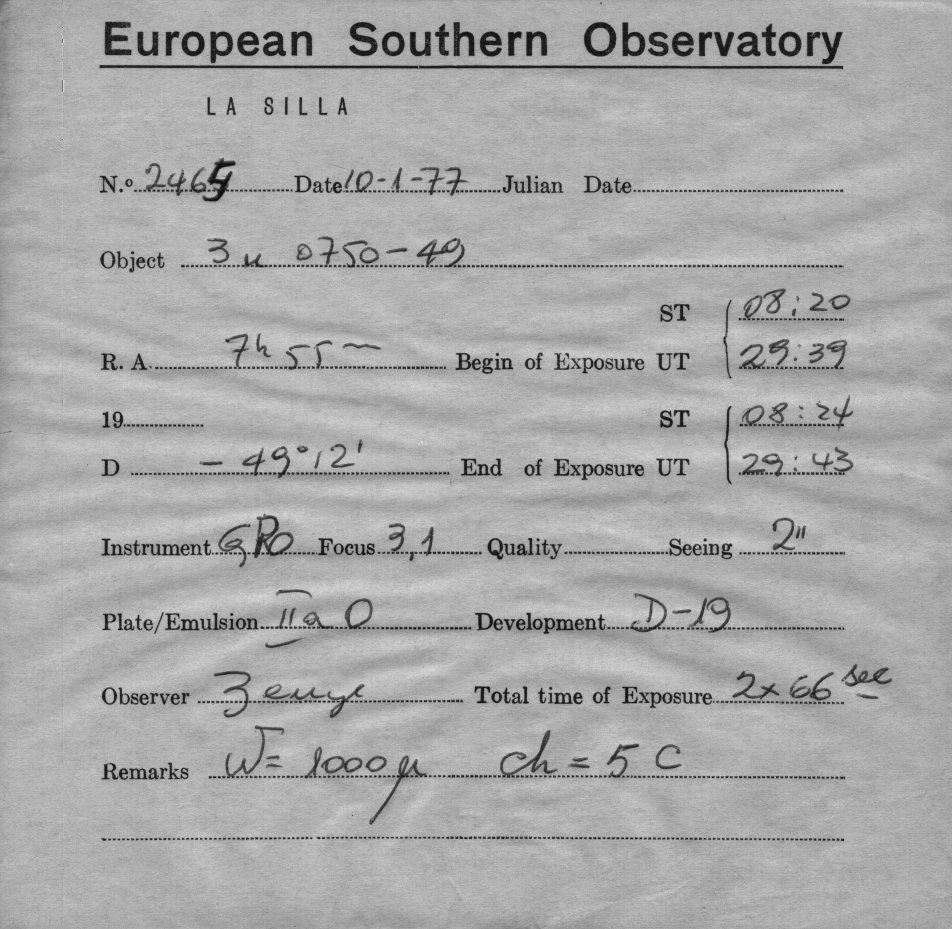 European Southern Observatory
LA SILLA
N.o 2465 Date 10-1-77 Julian Date
Object 3u 0750-49
ST 08:20
R. A. 7h 55m Begin of Exposure UT 29:39
19 ST 08:24
D - 49° 12' End of Exposure UT 29:43
Instrument GPO Focus 3,1 Quality Seeing 2"
Plate/Emulsion IIa O Development D-19
Observer Total time of Exposure 2x66 sec
Remarks W = 1000 µ ch = 5 C